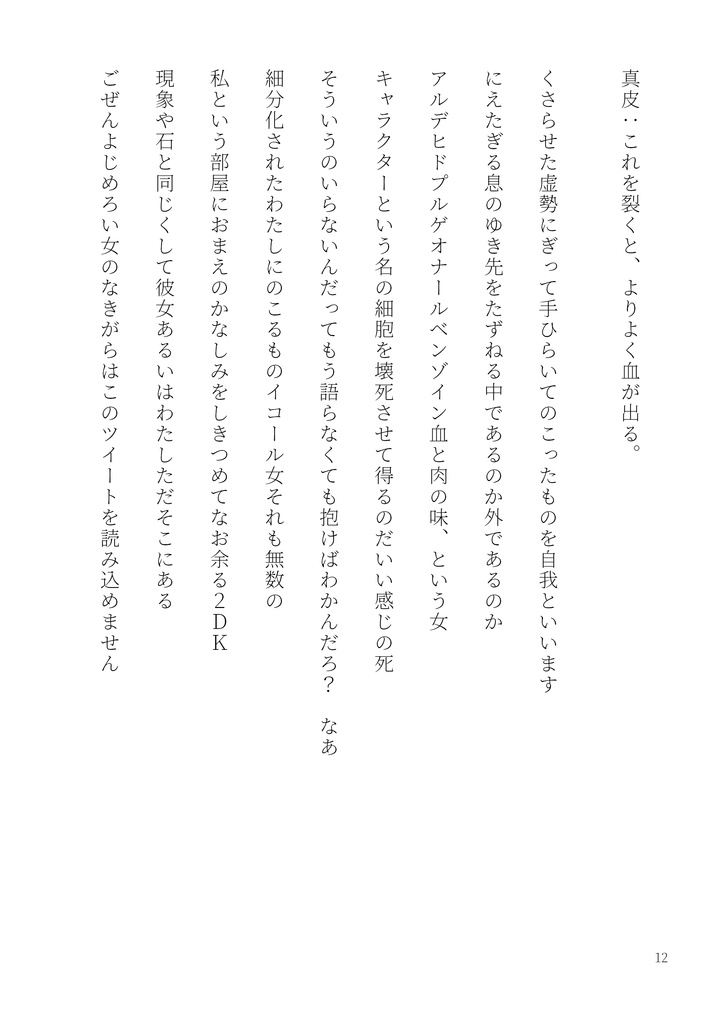 真皮：これを裂くと、よりよく血が出る。
くさらせた虚勢にぎって手ひらいてのこったものを自我といいます
にえたぎる息のゆき先をたずねる中であるのか外であるのか
アルデヒドプルゲオナールベンゾイン血と肉の味、という女
キャラクターという名の細胞を壊死させて得るのだいい感じの死
そういうのいらないんだってもう語らなくても抱けばわかんだろ？　なあ
細分化されたわたしにのこるものイコール女それも無数の
私という部屋におまえのかなしみをしきつめてなお余る２ＤＫ
現象や石と同じくして彼女あるいはわたしただそこにある
ごぜんよじめろい女のなきがらはこのツイートを読み込めません
12